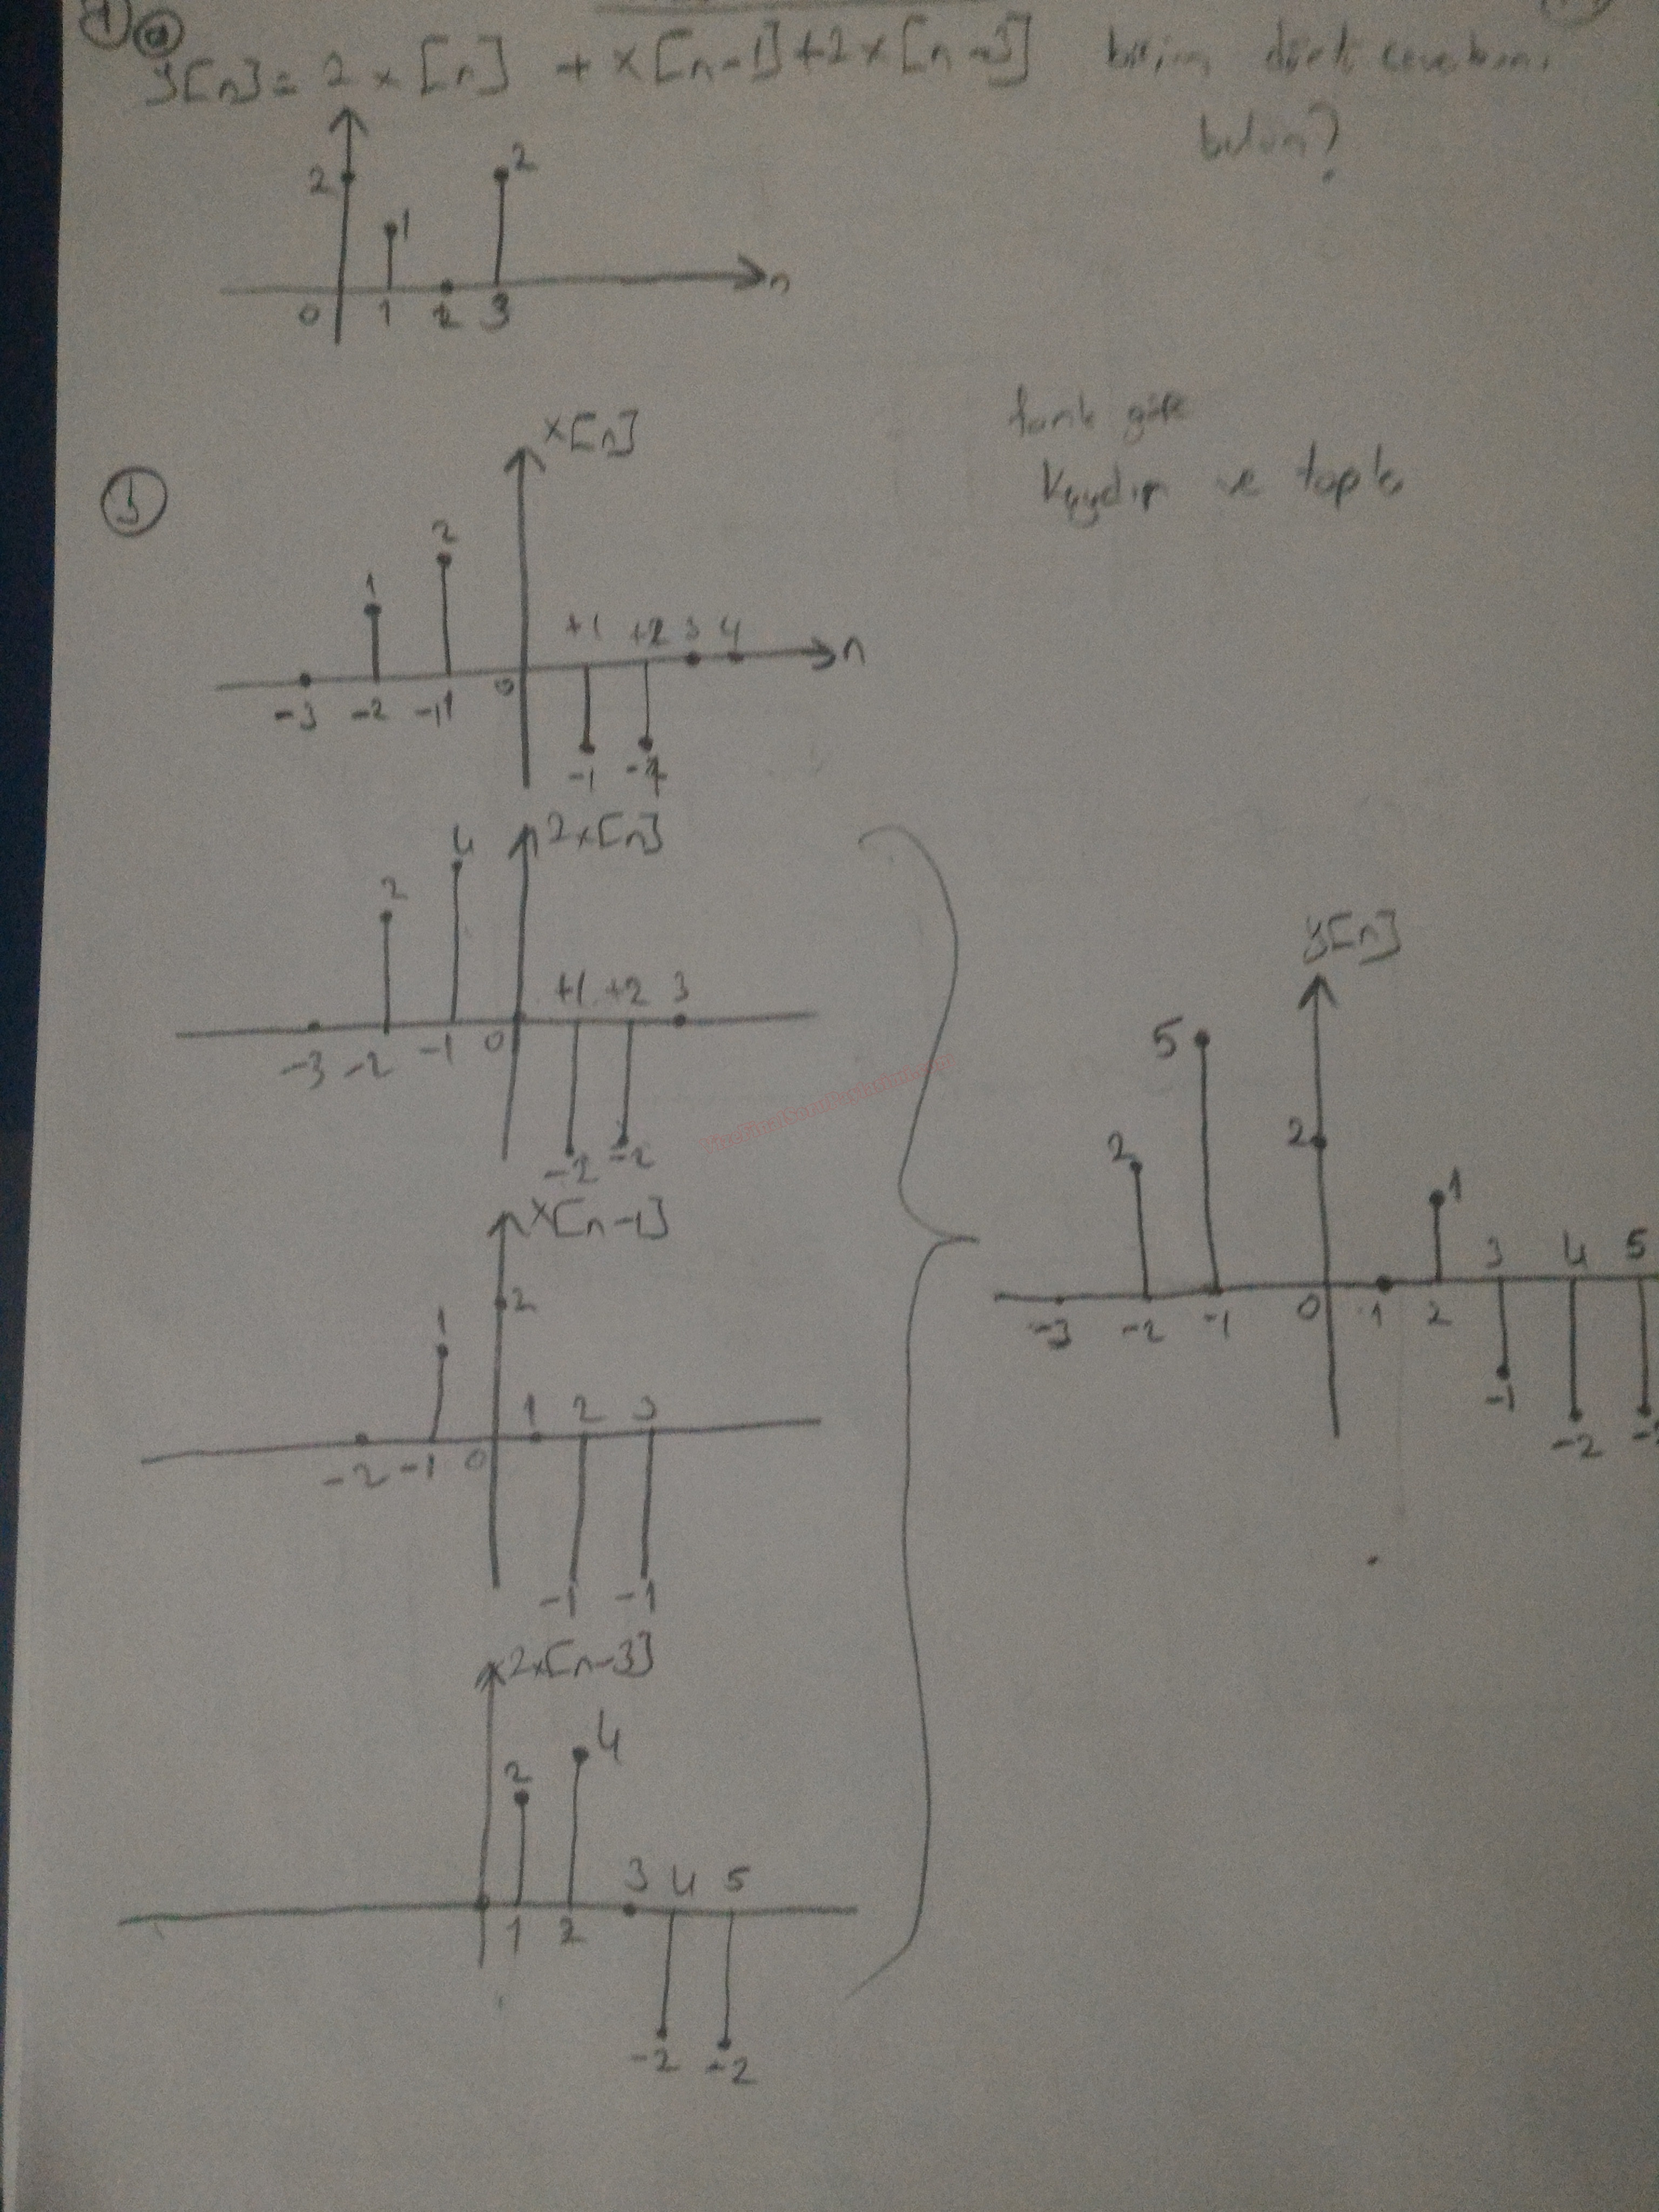 1 a
y[n] = 2x[n] + x[n-1] + 2x[n-3] birim dürtü cevabını
bulun?
2 1 2
0 1 2 3 n
x[n]
fark göre
Kaydır ve topla
b
1 2
+1 +2 3 4 n
-3 -2 -1 0
-1 -1
2x[n]
2 4
+1 +2 3
-3 -2 -1 0
-2 -2
x[n-1]
1 2
1 2 3
-2 -1 0
-1 -1
2x[n-3]
2 4
3 4 5
1 2
-2 -2
y[n]
2 5 2 1
3 4 5
-3 -2 -1 0 1 2
-1 -2